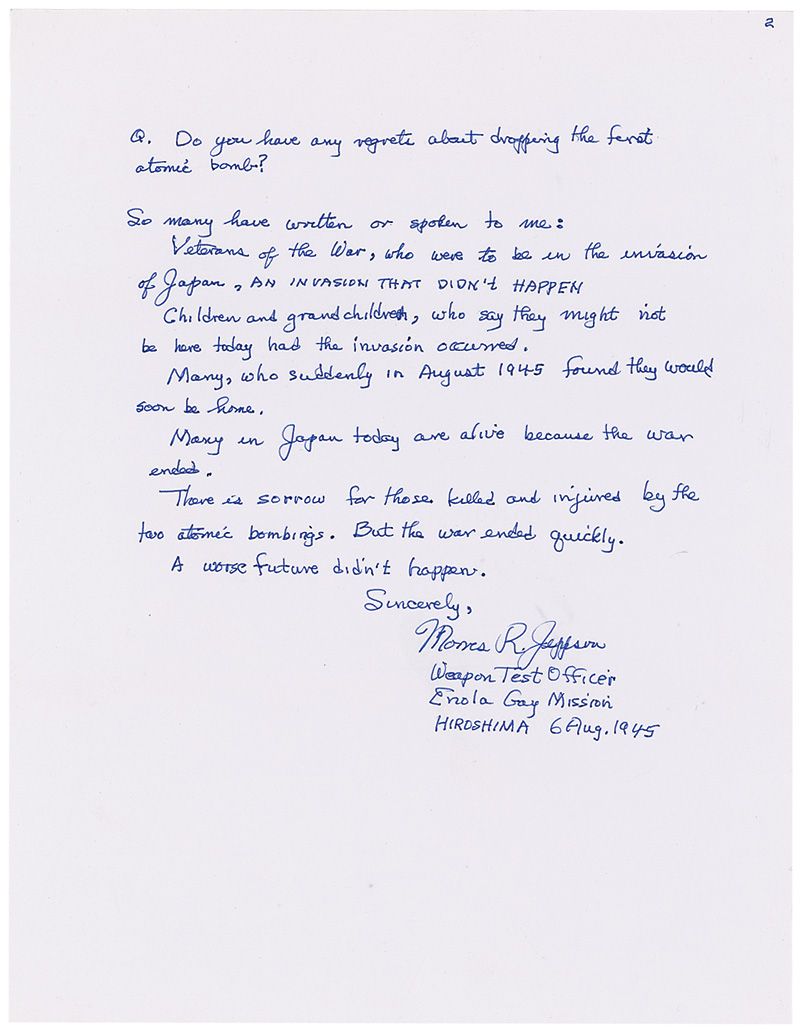 2
Q. Do you have any regrets about dropping the first
atomic bomb?
So many have written or spoken to me:
Veterans of the War, who were to be in the invasion
of Japan, AN INVASION THAT DIDN't HAPPEN
Children and grandchildren, who say they might not
be here today had the invasion occurred.
Many, who suddenly in August 1945 found they would
soon be home.
Many in Japan today are alive because the war
ended.
There is sorrow for those killed and injured by the
two atomic bombings. But the war ended quickly.
A worse future didn't happen.
Sincerely,
Morris R. Jeppson
Weapon Test Officer
Enola Gay Mission
HIROSHIMA 6 Aug. 1945